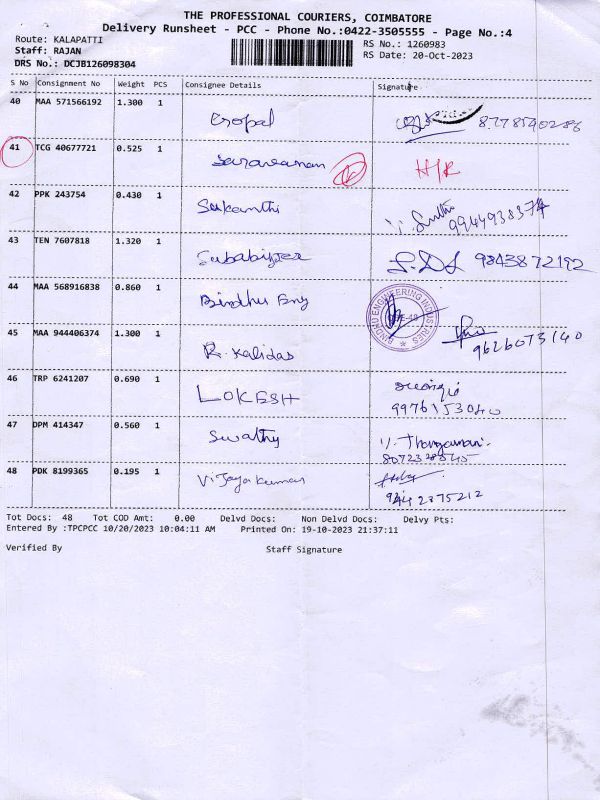 THE PROFESSIONAL COURIERS, COIMBATORE
Delivery Runsheet - PCC - Phone No.:0422-3505555 - Page No.:4
Route: KALAPATTI
Staff: RAJAN
DRS No.: DCJB126098304
RS No.: 1260983
RS Date: 20-Oct-2023
S No Consignment No Weight PCS Consignee Details Signature
40 MAA 571566192 1.300 1 Gopal
41 TCG 40677721 0.525 1 Saravanan H/R
42 PPK 243754 0.430 1 Sukanthi 9944938374
43 TEN 7607818 1.320 1 9843872192
44 MAA 568916838 0.860 1 Bindhu Eng
BINDHU ENGINEERING INDUSTRIES
45 MAA 944406374 1.300 1 R. Kalidas 9626073140
46 TRP 6241207 0.690 1 LOKESH
9976153040
47 DPM 414347 0.560 1 Swathy
48 PDK 8199365 0.195 1 Vijayakumar
9442375212
Tot Docs: 48 Tot COD Amt: 0.00 Delvd Docs: Non Delvd Docs: Delvy Pts:
Entered By :TPCPCC 10/20/2023 10:04:11 AM Printed On: 19-10-2023 21:37:11
Verified By Staff Signature